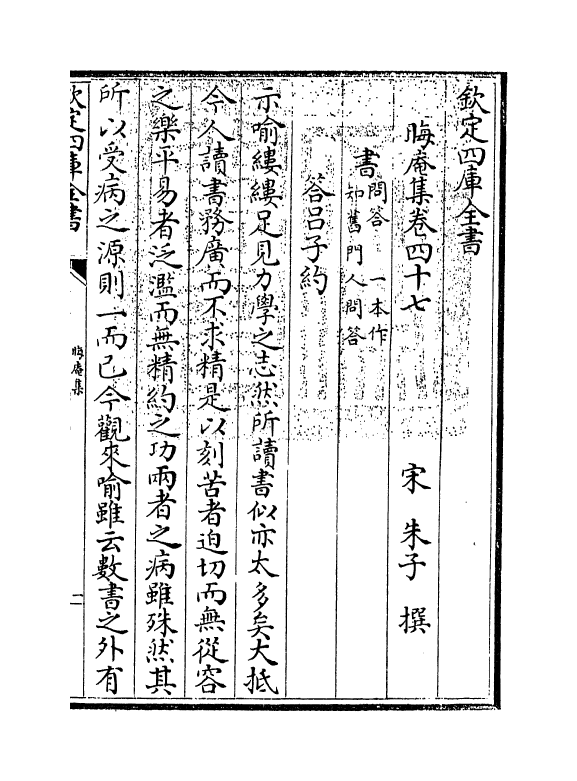 欽定四庫全書
晦庵集卷四十七
宋 朱子 撰
書問答 一本作
知舊門人問答
答呂子約
示喻縷縷足見力學之志然所讀書似亦太多矣大抵
今人讀書務廣而不求精是以刻苦者迫切而無從容
之樂平易者泛濫而無精約之功兩者之病雖殊然其
所以受病之源則一而已今觀來喻雖云數書之外有
欽定四庫全書
晦庵集